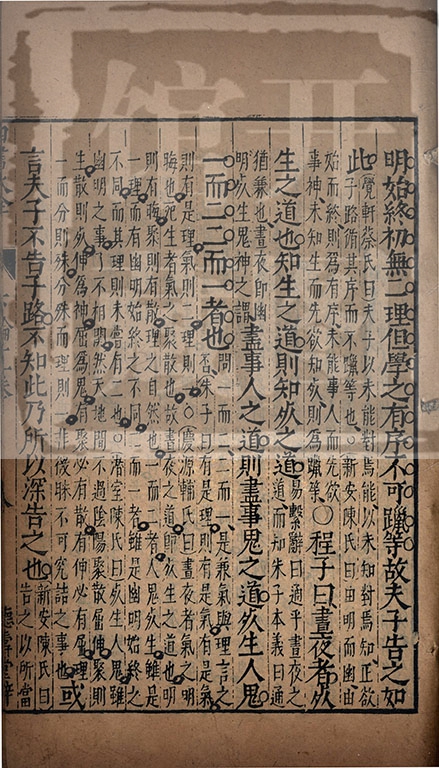 明始終初無二理但學之有序不可躐等故夫子告之如
此
覺軒蔡氏曰夫子以未能對焉能以未知對焉知正欲
子路循其序而不躐等也○新安陳氏曰由明而幽由
始而終則爲有序未能事人而先欲
事神未知生而先欲知死則爲躐等
○程子曰晝夜者死
生之道也知生之道則知死之道
易繫辭曰通乎晝夜之
道而知朱子本義曰通
猶兼也晝夜即幽
明死生鬼神之謂
盡事人之道則盡事鬼之道死生人鬼
一而二二而一者也
問一而二二而一是兼氣與理言之
否朱子曰有是理則有是氣有是氣
則有是理氣則二理則一○慶源輔氏曰晝夜者氣之明
晦也死生者氣之聚散也故晝夜之道即死生之道也明
則有晦聚則有散理之自然也一而二者人鬼死生雖是
一理而有幽明始終之不同二而一者雖是幽明始終之
不同而其理則未嘗有二也○潛室陳氏曰死生人鬼雖
幽明之事了不相關然天地間不過陰陽聚散屈伸聚則
生散則死伸爲神屈爲鬼有聚必有散有伸必有屈理
一而分則殊分殊而理則一非後昧不可究詰之事也
或
言夫子不告子路不知此乃所以深告之也
新安陳氏曰
告之以所當